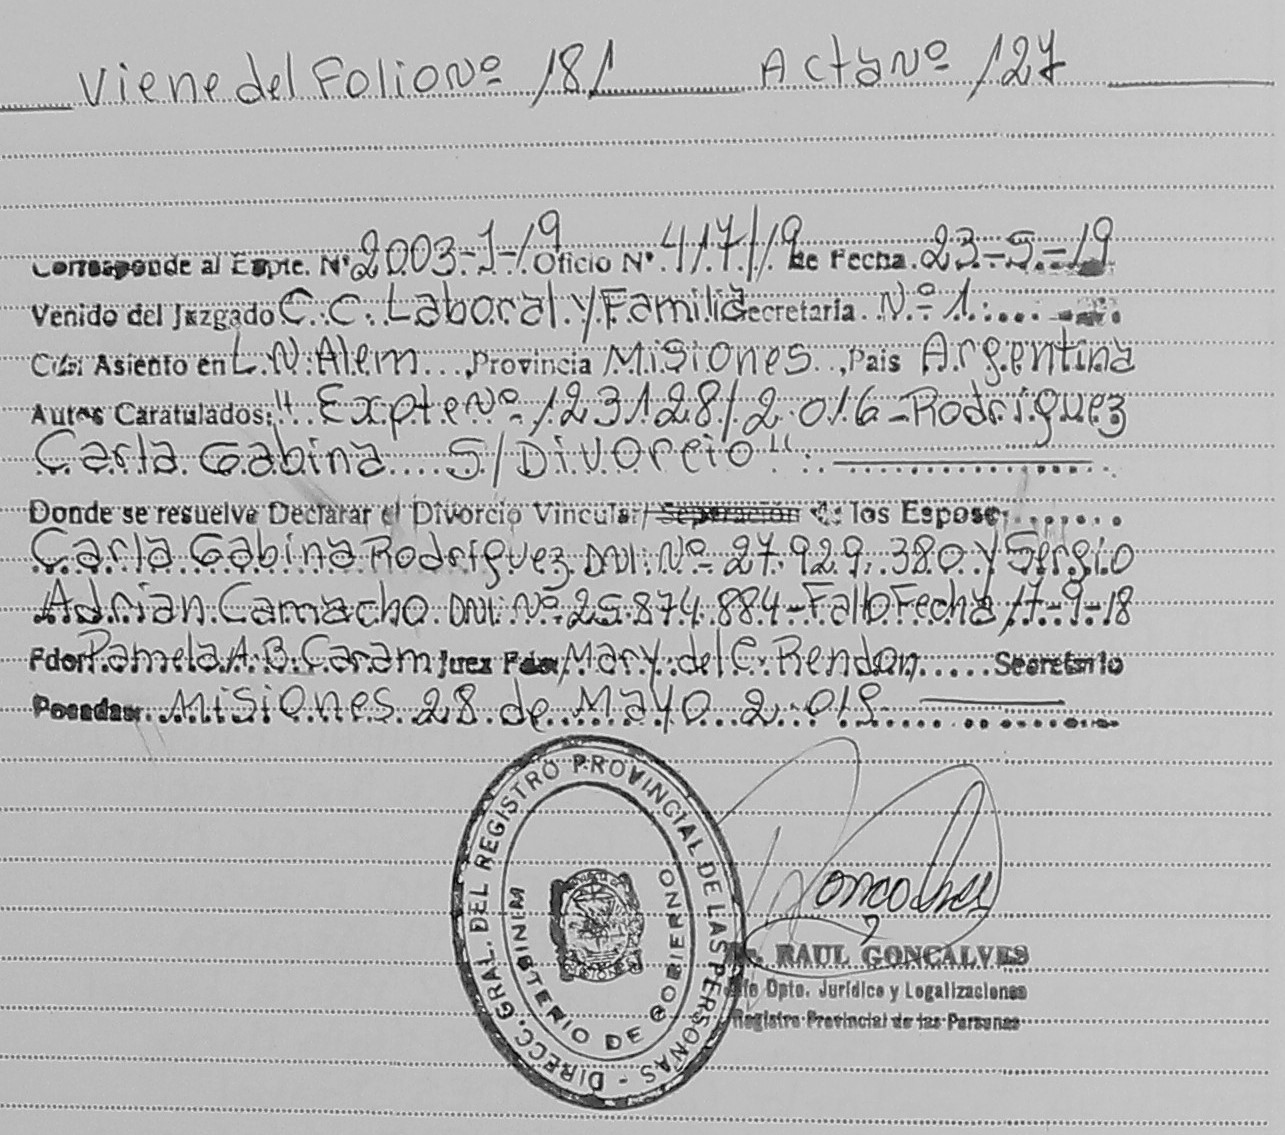 Viene del Folio Nº 181 Acta Nº 127
Corresponde al Expte. Nº 2003-1-19 Oficio Nº 417/19 de Fecha 23-5-19
Venido del Juzgado C.C. Laboral y Familia Secretaria Nº 1
Con Asiento en L.N. Alem, Provincia Misiones, Pais Argentina
Autos Caratulados: "Expte Nº 123128/2.016-Rodríguez
Carla Gabina S/Divorcio"
Donde se resuelve Declarar el Divorcio Vincular/Separación de los Esposos
Carla Gabina Rodríguez DNI: Nº 27.929.380 y Sergio
Adrian Camacho DNI: Nº 25.874.884-Fallo Fecha 17-9-18
Fdor Pamela A.B. Caram Juez Fdor Mary del C. Rendan Secretario
Posadas, Misiones 28 de Mayo 2.019
DIRECC. GRAL. DEL REGISTRO PROVINCIAL DE LAS PERSONAS -
MINISTERIO DE GOBIERNO
Dr. RAUL GONCALVES
Jefe Dpto. Jurídico y Legalizaciones
Registro Provincial de las Personas